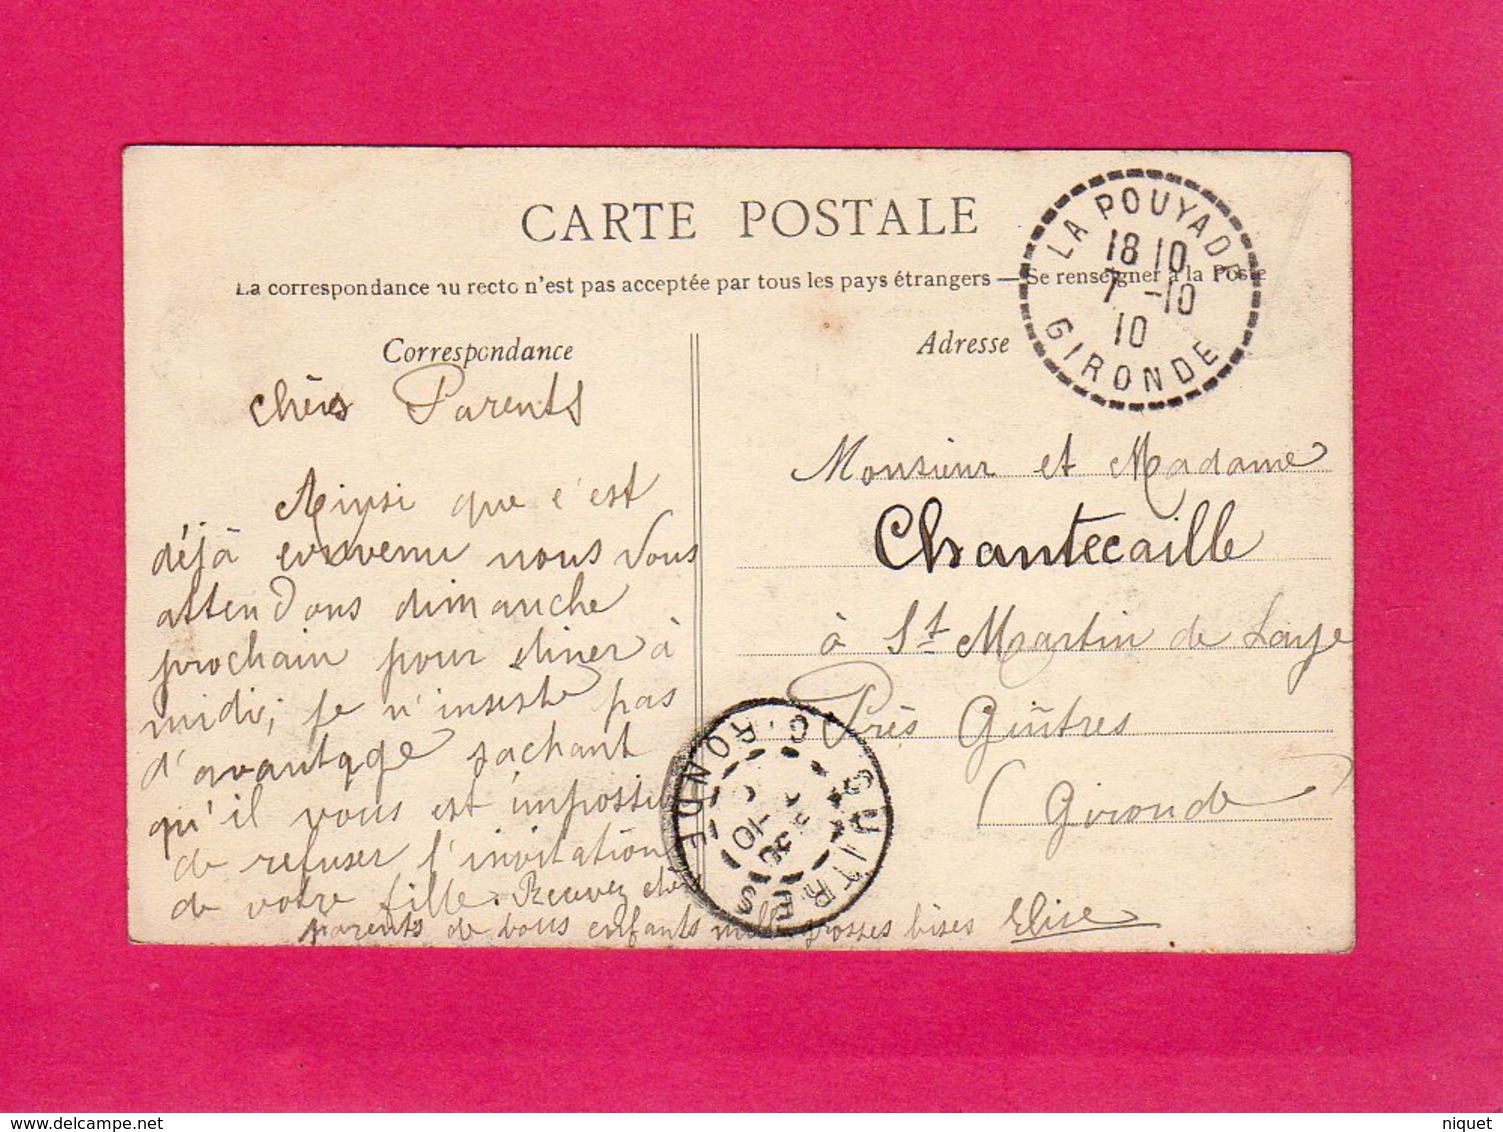 CARTE POSTALE
La correspondance au recto n'est pas acceptée par tous les pays étrangers — Se renseigner à la Poste
Correspondance
chèrs Parents
Ainsi que c'est
déjà convenu nous vous
attendons dimanche
prochain pour diner à
midi; je n'insiste pas
d'avantage sachant
qu'il vous est impossible
de refuser l'invitation
de votre fille. Recevez chèrs
parents de vous enfants mille grosses bises Elise
Adresse
LA POUYADE
18 10
7 -10
10
GIRONDE
Monsieur et Madame
Chantecaille
à St Martin de Laye
Près Guîtres
(Gironde)
GUITRES
GIRONDE
delcampe.net
niquet